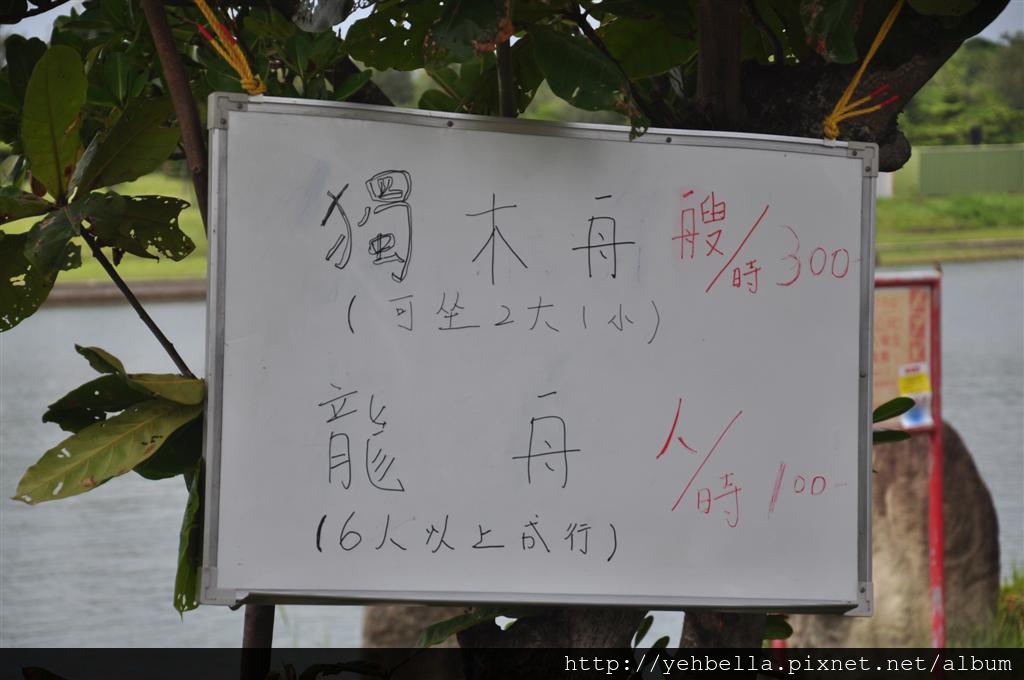 獨木舟 艘/時 300-
(可坐2大1小)
龍舟 人/時 100-
(6人以上成行)
http://yehbella.pixnet.net/album